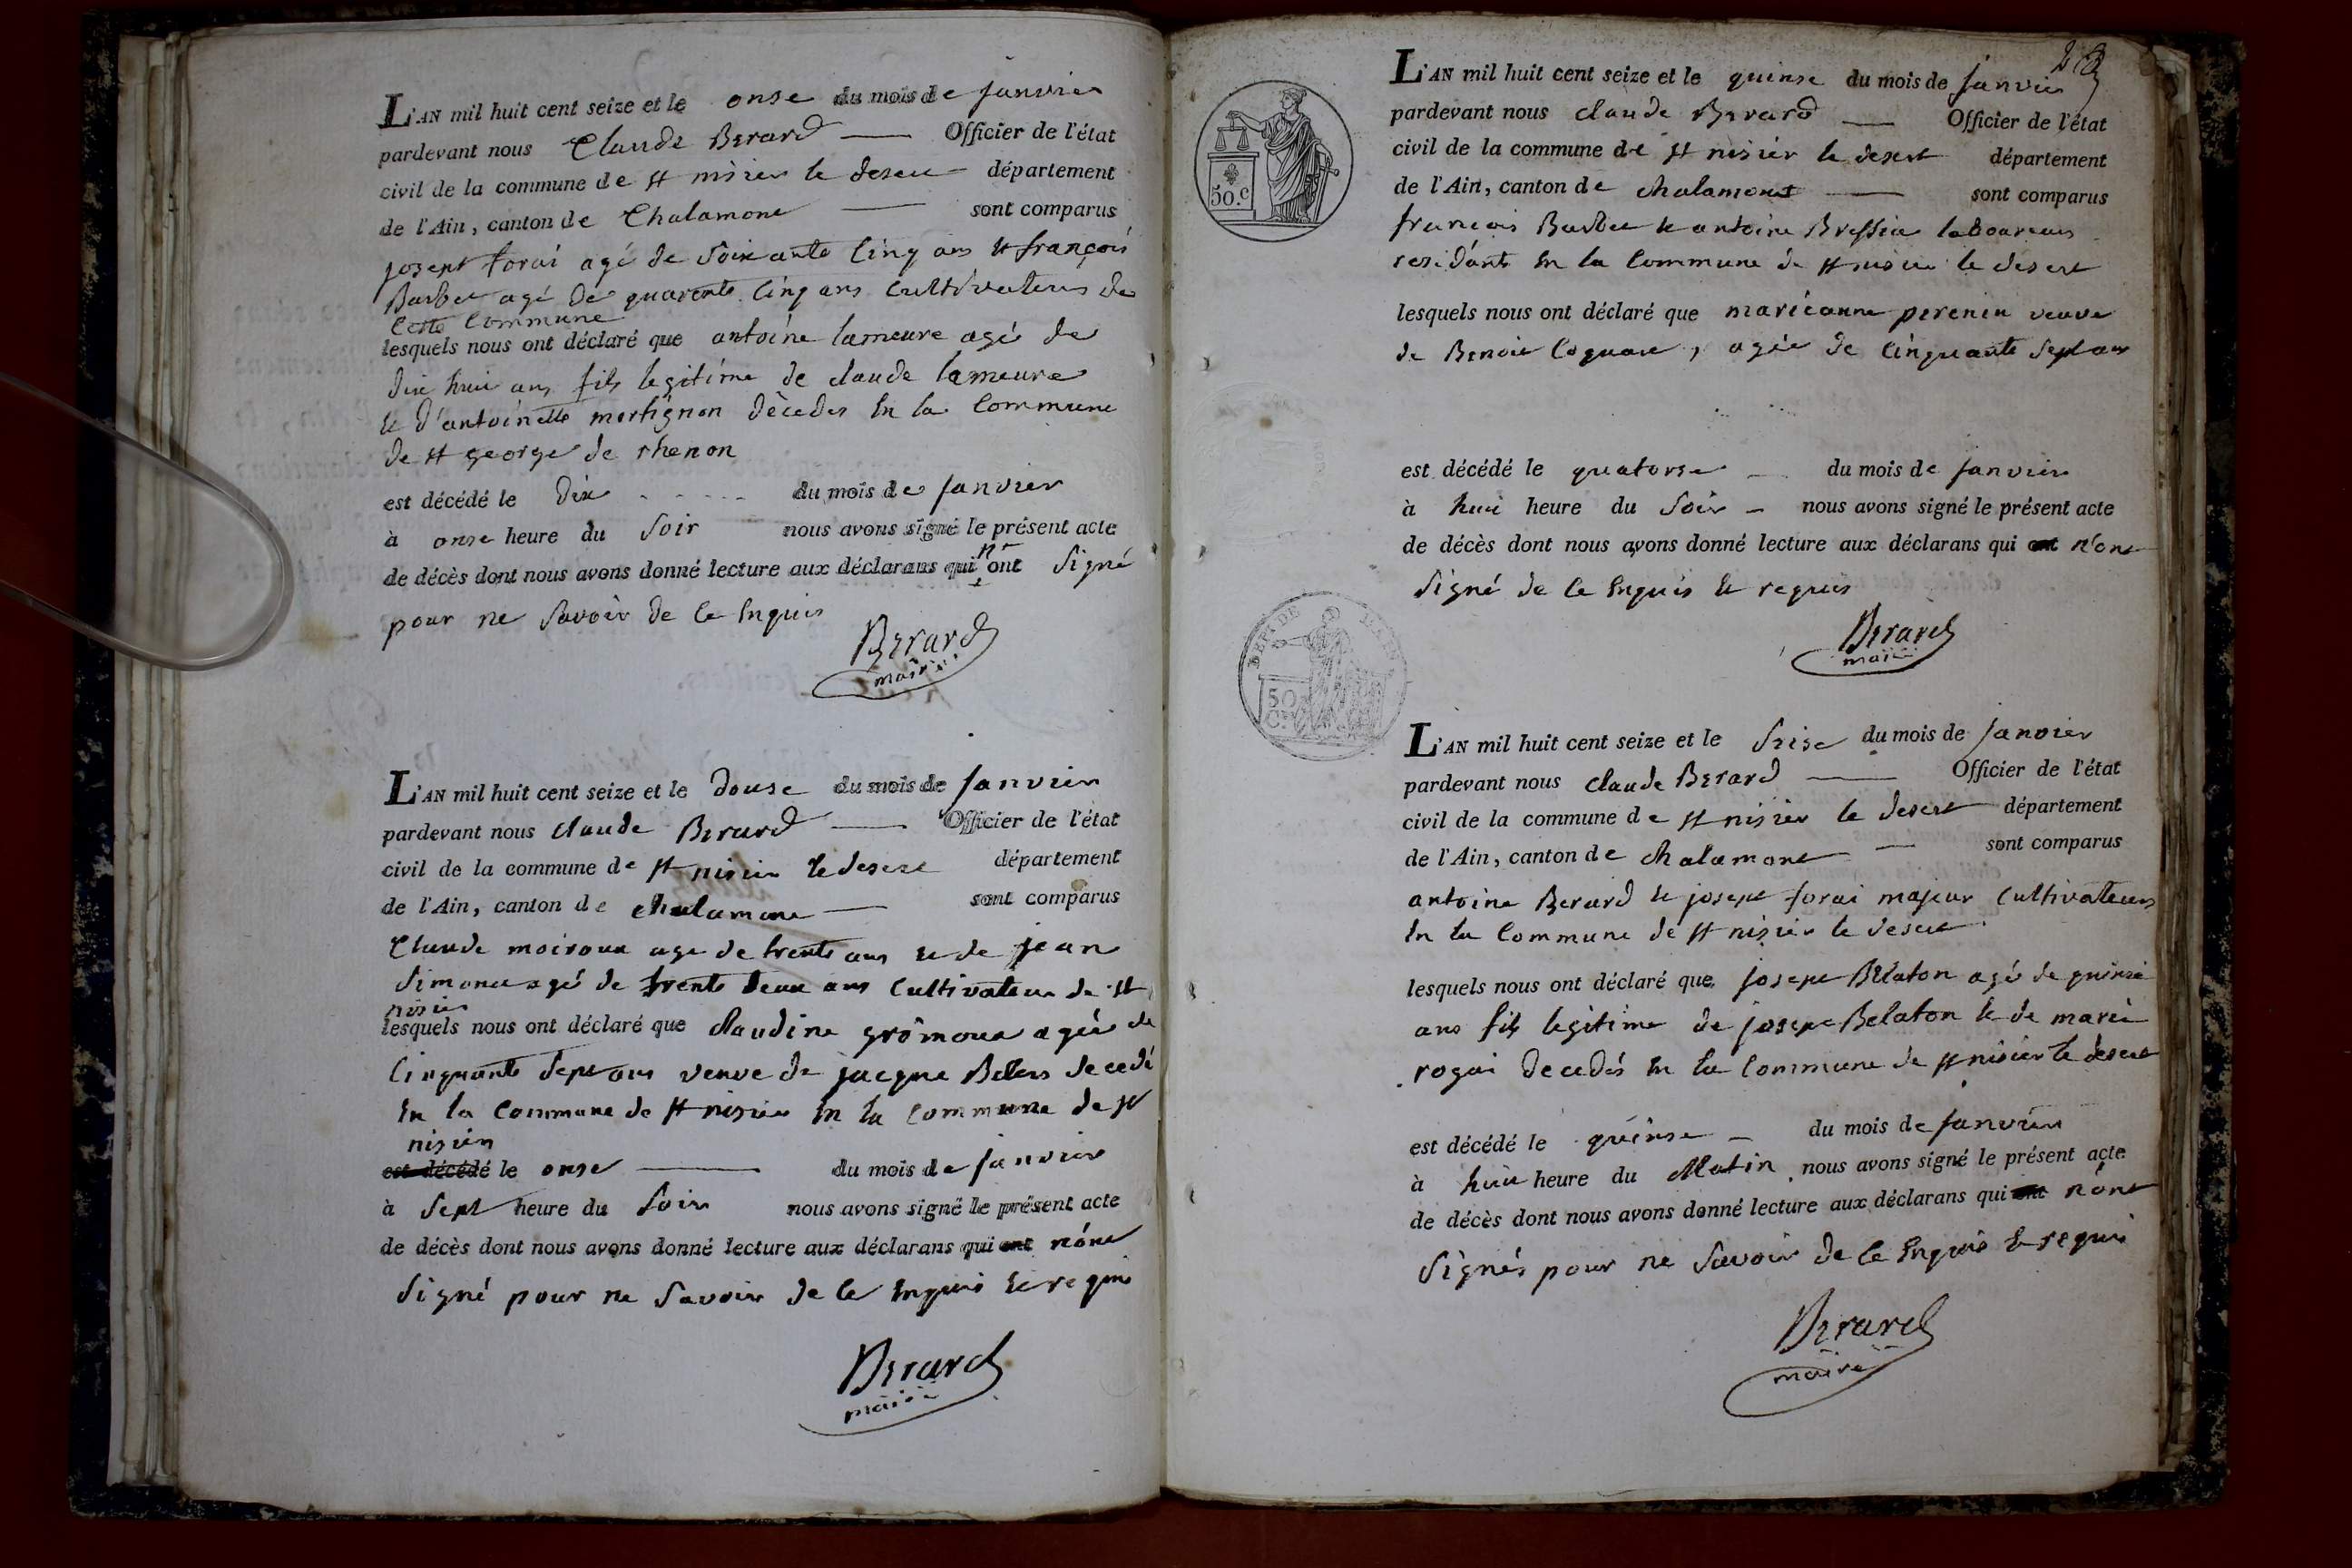 L'AN mil huit cent seize et le onse du mois de janvier
pardevant nous Claude Berard Officier de l'état
civil de la commune de st nisier le desert département
de l'Ain, canton de Chalamont sont comparus
josept forai agé de Soixante Cinq ans et françois
Barbet agé de quarente Cinq ans Cultivateurs de
Cette Commune
lesquels nous ont déclaré que antoine lameure agé de
dix huit ans fils legitime de claude lameure
et d'antoinette mortignon décedés En la Commune
de st george de rhenon
est décédé le Dix du mois de janvier
à onse heure du Soir nous avons signé le présent acte
de décès dont nous avons donné lecture aux déclarans qui n'ont Signé
pour ne Savoir de Ce Enquis
Berard
maire
L'AN mil huit cent seize et le douse du mois de janvier
pardevant nous Claude Berard Officier de l'état
civil de la commune de st nisier le desert département
de l'Ain, canton de chalamont sont comparus
Claude moiroux age de trente ans et de jean
Simonet agé de trente deux ans Cultivateur de st
nisier
lesquels nous ont déclaré que claudine agée de
Cinquante Sept ans veuve de jacque decedé
En la Commune de st nisier En la Commune de st
nisier
est décédé le onse du mois de janvier
à Sept heure du Soir nous avons signé le présent acte
de décès dont nous avons donné lecture aux déclarans qui ont n'ont
Signé pour ne Savoir de Ce Enquis et requis
Berard
maire
L'AN mil huit cent seize et le quinse du mois de janvier
pardevant nous claude Berard Officier de l'état
civil de la commune de st nisier le desert département
de l'Ain, canton de chalamont sont comparus
francois Barbet et antoine Bressia laboureurs
residants En la Commune de st nisier le desert
lesquels nous ont déclaré que marieanne perenin veuve
de Benoit Coquare, agée de Cinquante Sept ans
est décédé le quatorse du mois de janvier
à huit heure du Soir nous avons signé le présent acte
de décès dont nous avons donné lecture aux déclarans qui ont n'ont
Signé de Ce Enquis et requis
Berard
maire
50.c
DEP. DE L'AIN
50
C.
L'AN mil huit cent seize et le Seise du mois de janvier
pardevant nous Claude Berard Officier de l'état
civil de la commune de st nisier le desert département
de l'Ain, canton de chalamont sont comparus
antoine Berard et josept forai majeur Cultivateurs
En la Commune de st nisier le desert
lesquels nous ont déclaré que josept Belaton agé de quinse
ans fils legitime de josept Belaton et de marie
rogai decedés En la Commune de st nisier le desert
est décédé le quinse du mois de janvier
à huit heure du Matin nous avons signé le présent acte
de décès dont nous avons donné lecture aux déclarans qui ont n'ont
Signés pour ne Savoir de Ce Enquis et requis
Berard
maire